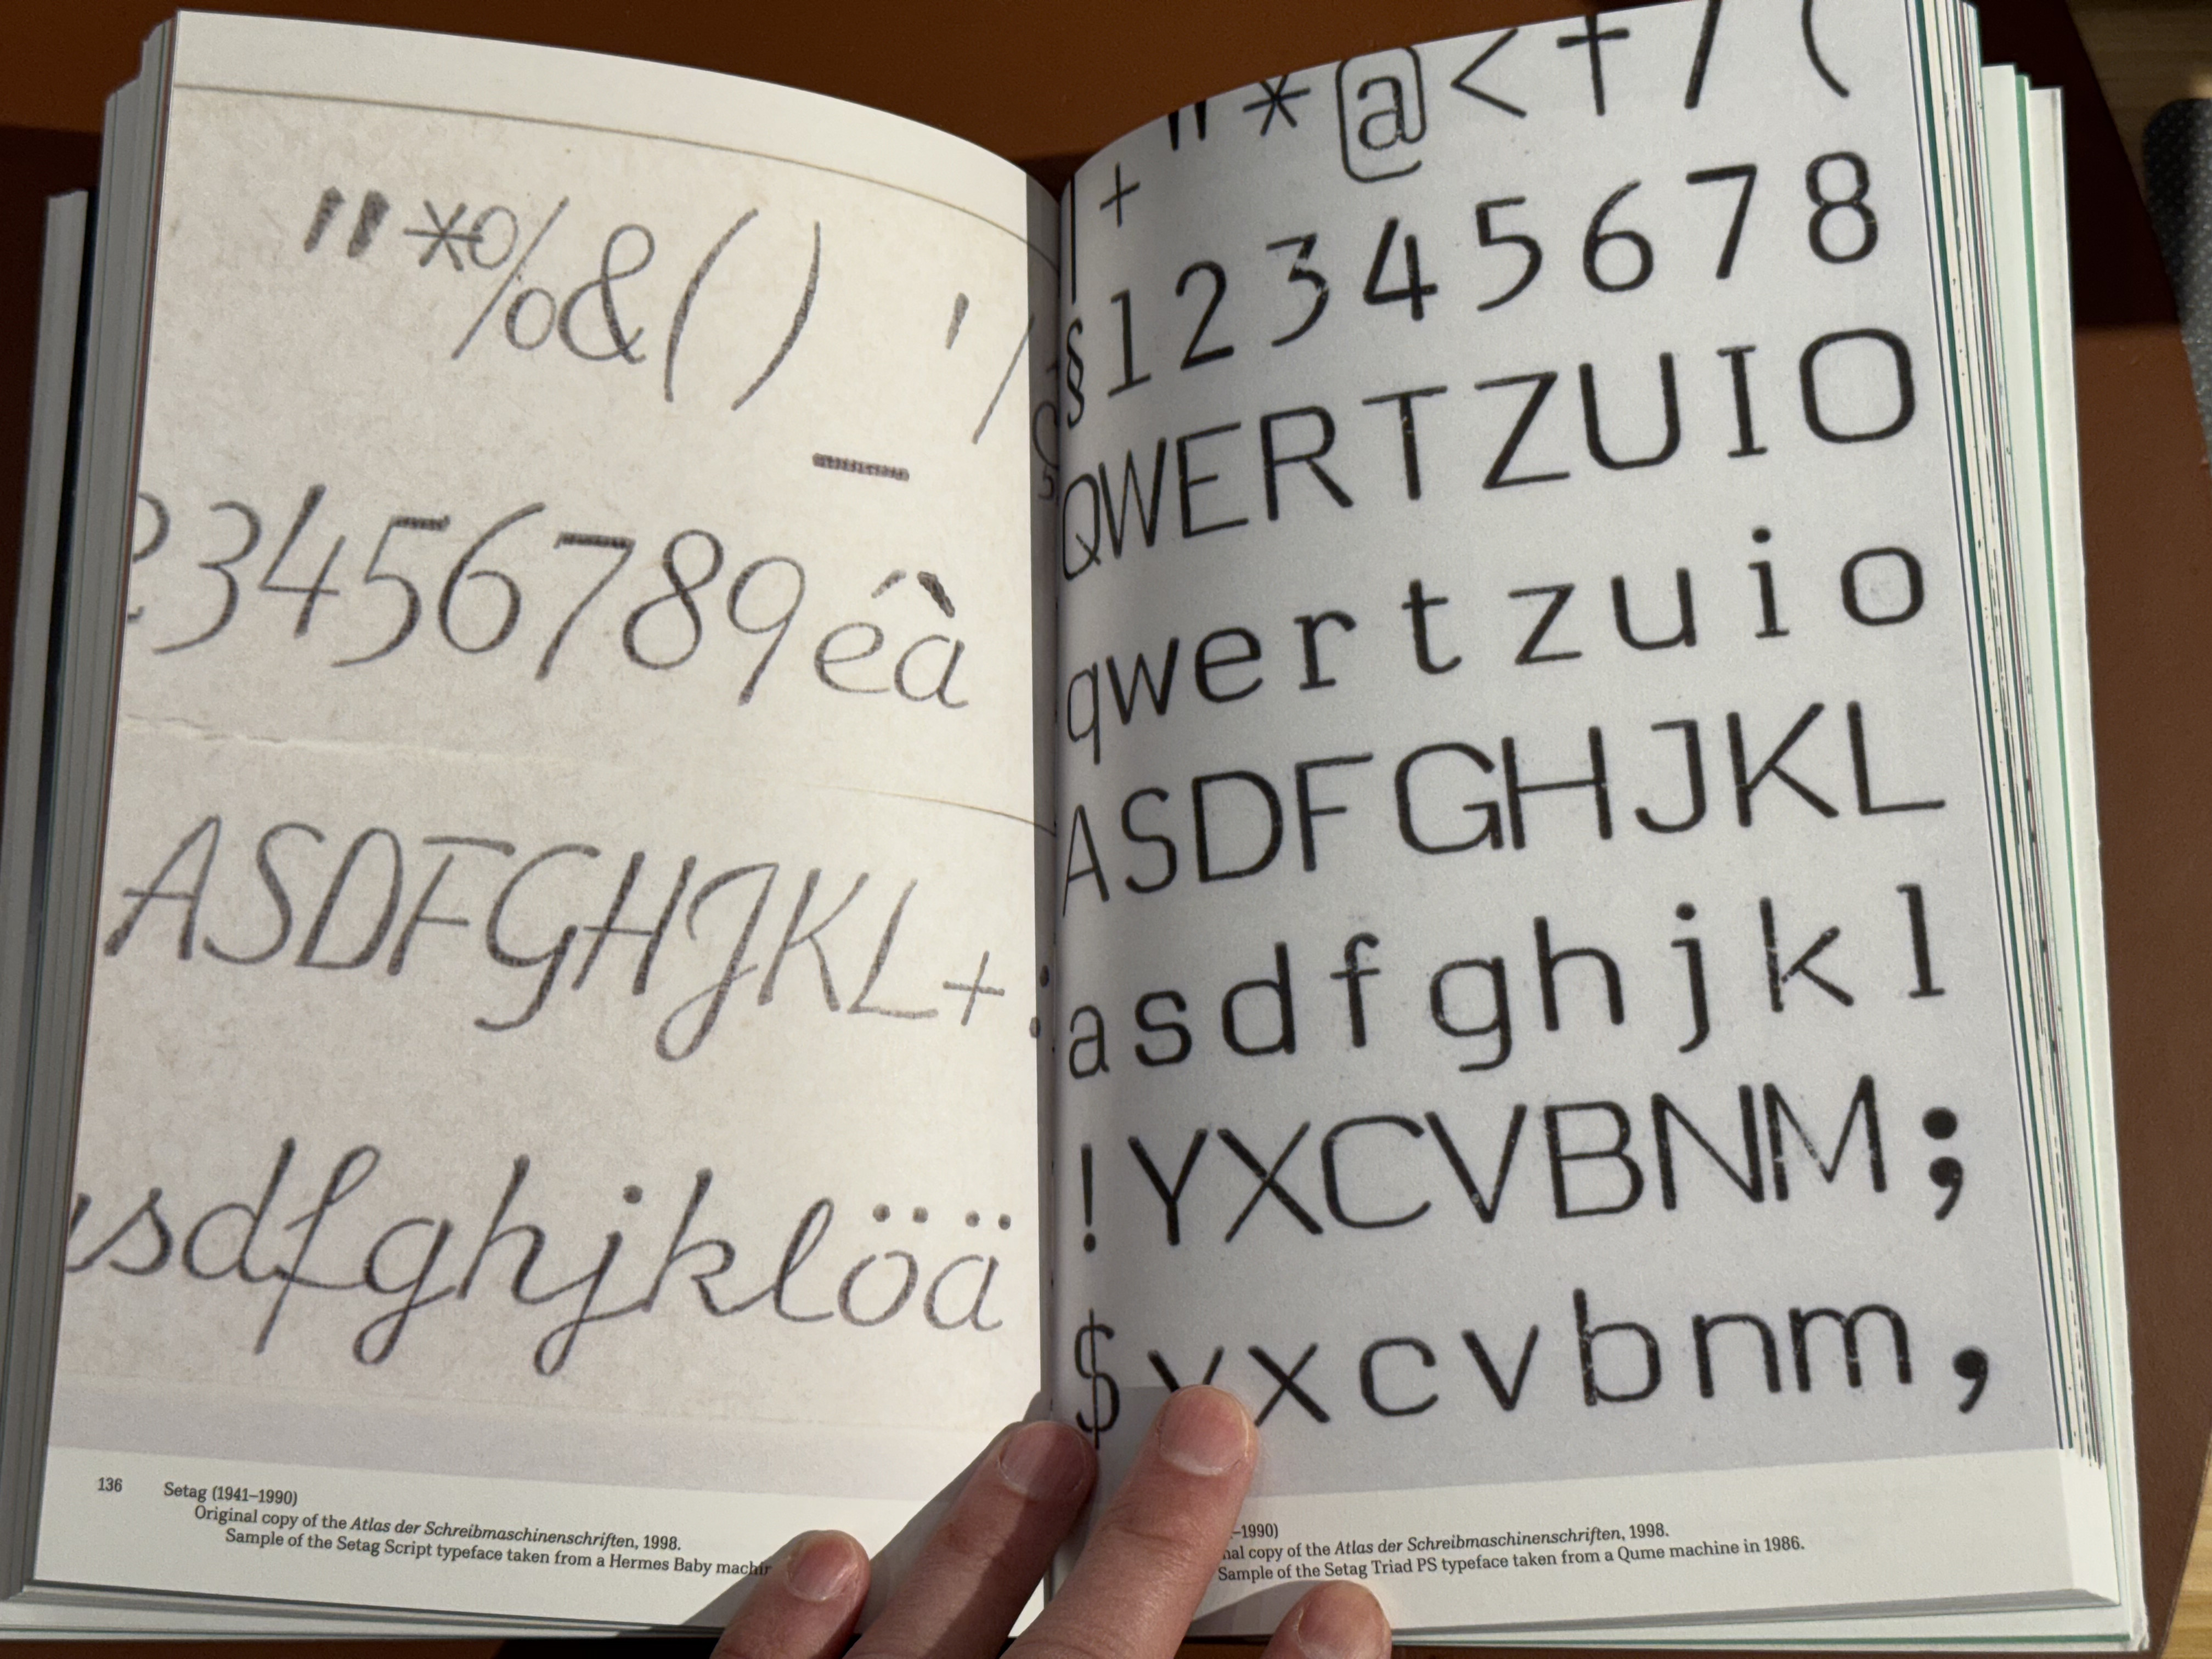 "*%&()_'/
3456789éà
ASDFGHJKL+
sdfghjklöä
136
Setag (1941–1990)
Original copy of the Atlas der Schreibmaschinenschriften, 1998.
Sample of the Setag Script typeface taken from a Hermes Baby
"*@<†/(
+
§12345678
QWERTZUIO
qwertzuio
ASDFGHJKL
asdfghjkl
!YXCVBNM;
$yxcvbnm,
–1990)
copy of the Atlas der Schreibmaschinenschriften, 1998.
Sample of the Setag Triad PS typeface taken from a Qume machine in 1986.